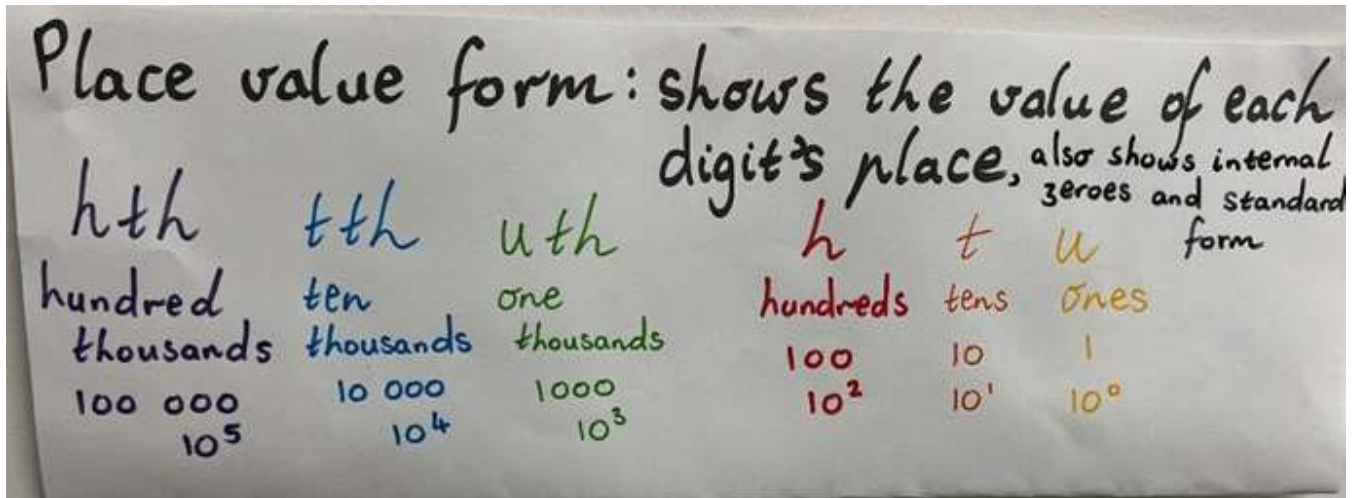 Place value form: shows the value of each
digit's place, also shows internal
zeroes and standard
form
hth tth uth h t u
hundred ten one hundreds tens ones
thousands thousands thousands
100 000 10 000 1000 100 10 1
10⁵ 10⁴ 10³ 10² 10¹ 10⁰